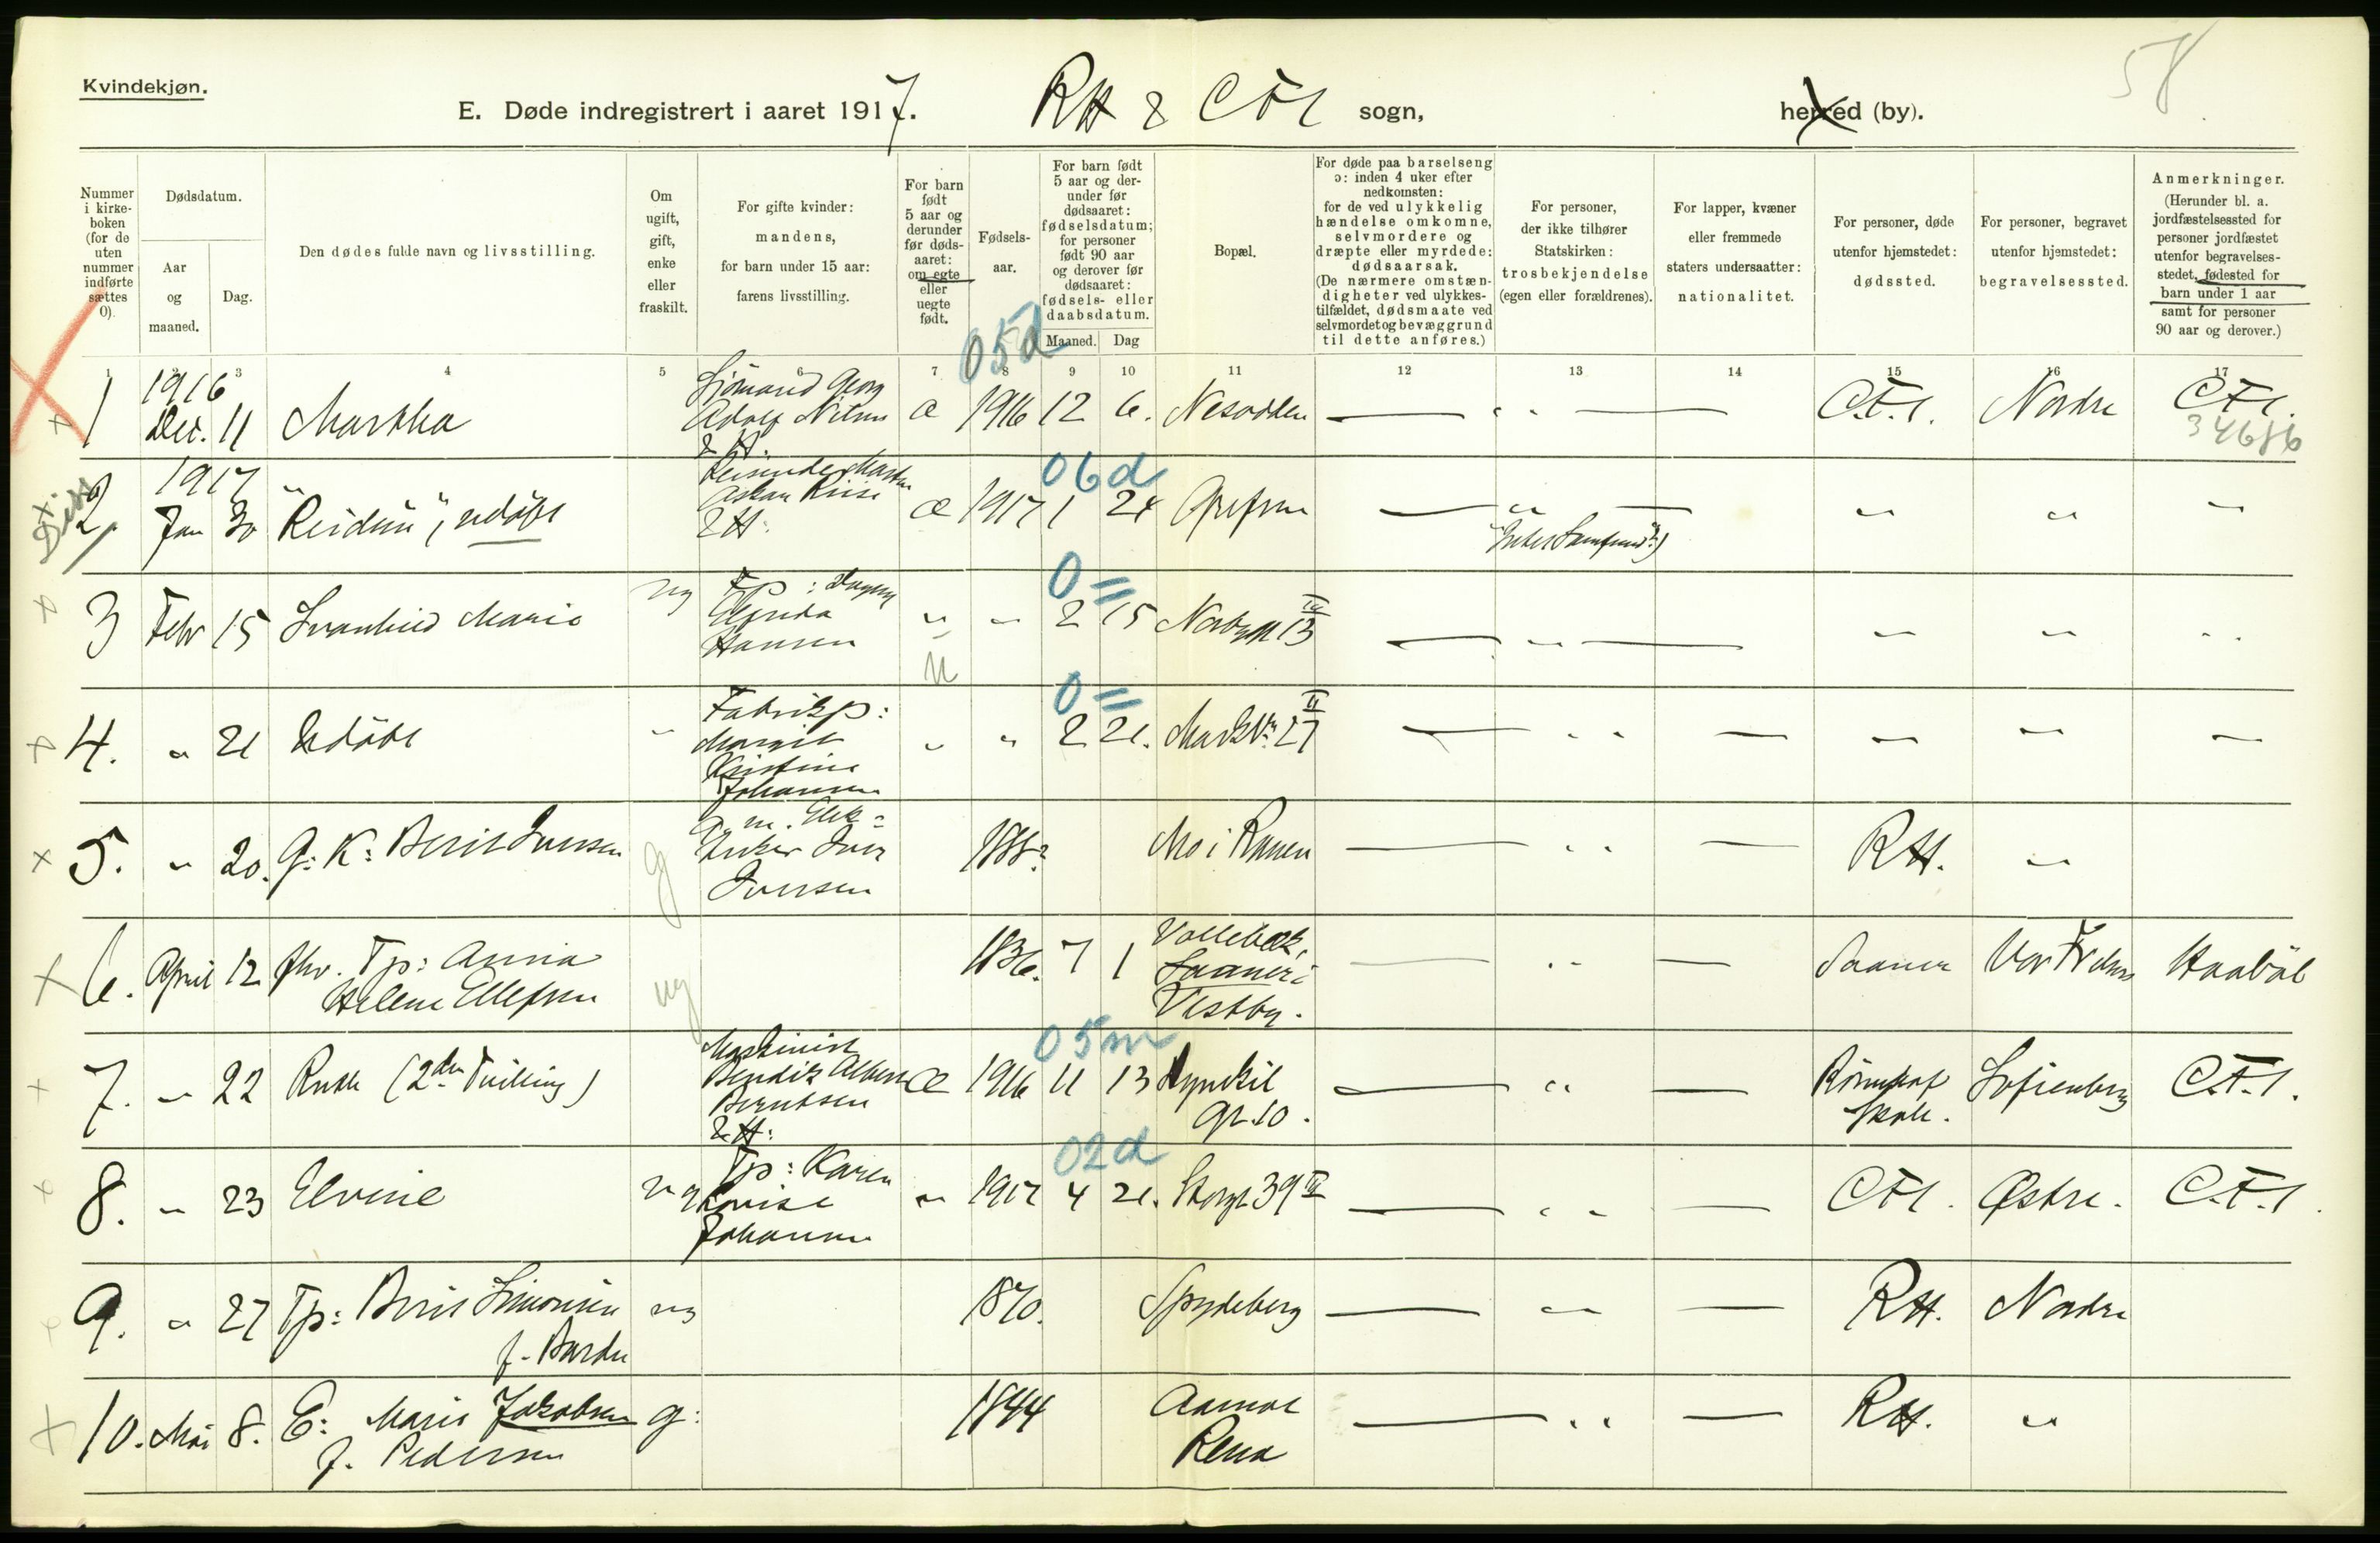 Kvindekjøn.
58
E. Døde indregistrert i aaret 1917. RH & CFl sogn, herred (by).
Nummer i kirkeboken (for de uten nummer indførte sættes 0).
Dødsdatum.
Aar og maaned.
Dag.
Den dødes fulde navn og livsstilling.
Om ugift, gift, enke eller fraskilt.
For gifte kvinder: mandens, for barn under 15 aar: farens livsstilling.
For barn født 5 aar og derunder før dødsaaret: om egte eller uegte født.
Fødselsaar.
For barn født 5 aar og derunder før dødsaaret: fødselsdatum; for personer født 90 aar og derover før dødsaaret: fødsels- eller daabsdatum.
Maaned. Dag
Bopæl.
For døde paa barselseng ɔ: inden 4 uker efter nedkomsten: for de ved ulykkelig hændelse omkomne, selvmordere og dræpte eller myrdede: dødsaarsak. (De nærmere omstændigheter ved ulykkestilfældet, dødsmaate ved selvmordet og bevæggrund til dette anføres.)
For personer, der ikke tilhører Statskirken: trosbekjendelse (egen eller forældrenes).
For lapper, kvæner eller fremmede staters undersaatter: nationalitet.
For personer, døde utenfor hjemstedet: dødssted.
For personer, begravet utenfor hjemstedet: begravelsessted.
Anmerkninger. (Herunder bl. a. jordfæstelsessted for personer jordfæstet utenfor begravelsesstedet, fødested for barn under 1 aar samt for personer 90 aar og derover.)
1 2 3 4 5 6 7 8 9 10 11 12 13 14 15 16 17
05d
1 1916 Dec. 11 Martha Sjömand Georg Adolf Nilsen & H. Æ 1916 12 6. Nesodden — " — C.F.l. Nordre CFl. 34686
06d
2. 1917 Jan 30 "Reidun", udöbt Riise & H: Æ 1917 1 24 Grefsen — " — " " "
0 =
3 Febr 15 Svanhild Marie ug Fp: Dagny Elfrida Hansen " u " 2 15 Norbyg 13 IV — " — " " "
0 =
4. " 21 Udöbt " Fabrikp: Margit Kristine Johansen " " 2 21. Markv. 27 II — " — " " "
5. " 20. G: K: Berit Iversen g G. m. Iver Iversen 188? Mo i Ranen — " — RH. "
6. April 12 fhv. Tp: Anna Helene Ellefsen ug 1836. 7 1 Vollebæk, Saaner i Vestby. — " — Saaner Vor Frelsers Haaböl
05m
7. " 22 Ruth (2den Tvilling) Maskinist Bendik Albert Berntsen & H: Æ 1916 11 13 gt. 10. — " — skole. Sofienberg C.F.l.
02d
8. " 23 Elvine ug Tp: Karen Lovise Johansen " 1917 4 21. Storgt 39 III — " — CFl. Østre. C.F.l.
9. " 27 Tp: Berit Simonsen f. Bardu ug 1870. Spydeberg — " — RH. Nordre
10. Mai 8. E: Marie Jakobsen f. Pedersen g: 1844 Aamot Rena — " — RH. "